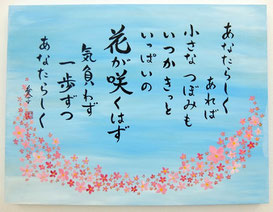 あなたらしく
あれば
小さな つぼみも
いつか きっと
いっぱいの
花が咲くはず
気負わず
一歩ずつ
あなたらしく